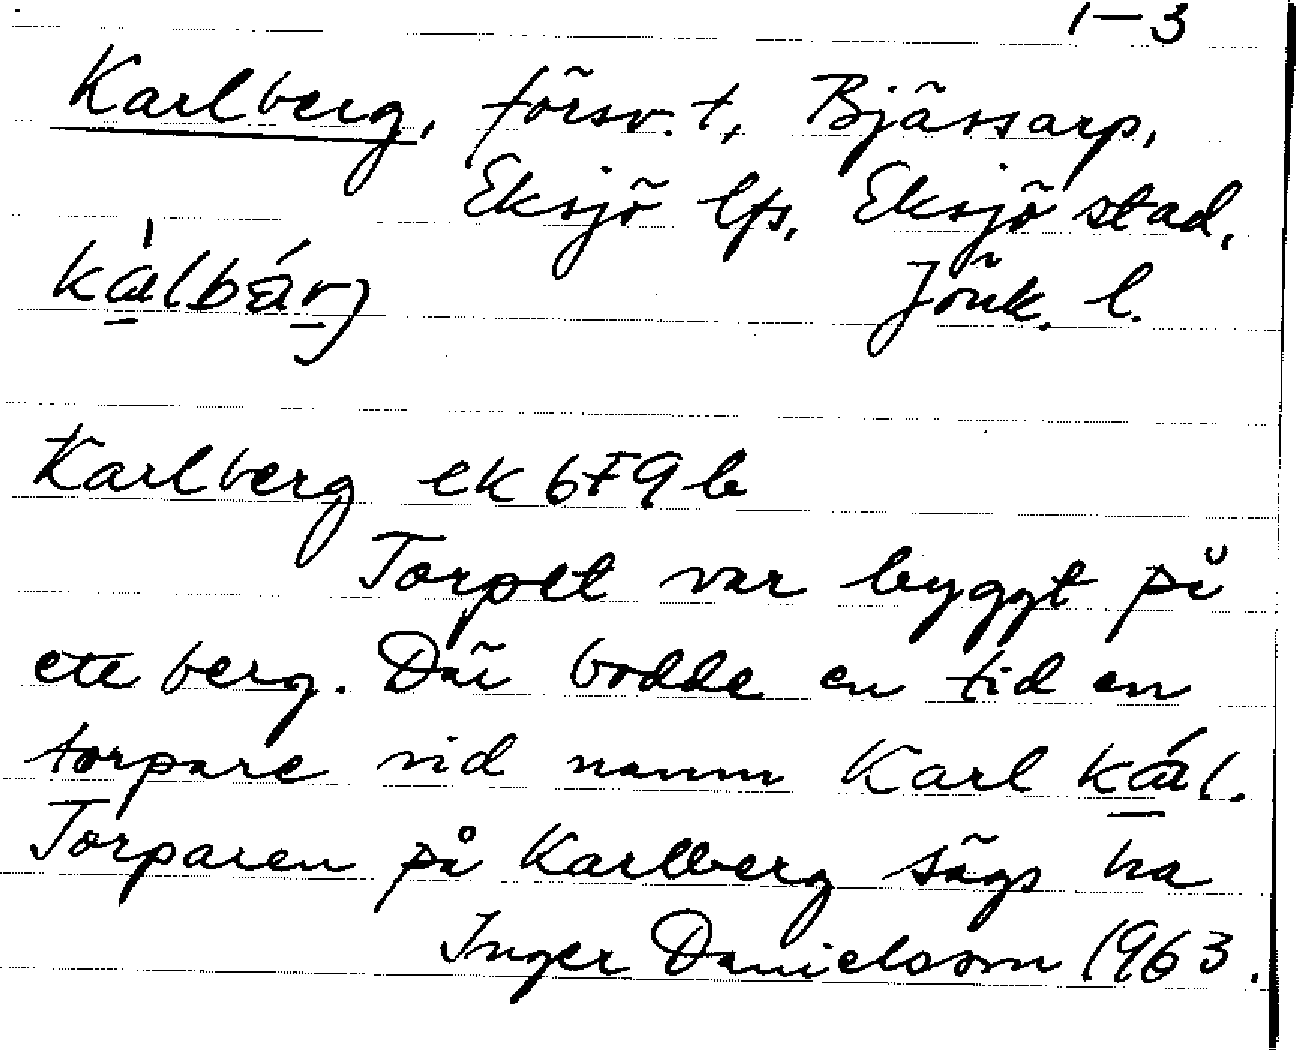 1-3
Karlberg, försv. t, Bjässarp,
Eksjö lfs, Eksjö stad,
kálbárj Jönk. l.
Karlberg ek 6F9b
Torpet var byggt på
ett berg. Där bodde en tid en
torpare vid namn Karl kál.
Torparen på Karlberg sägs ha
Inger Danielsson 1963.